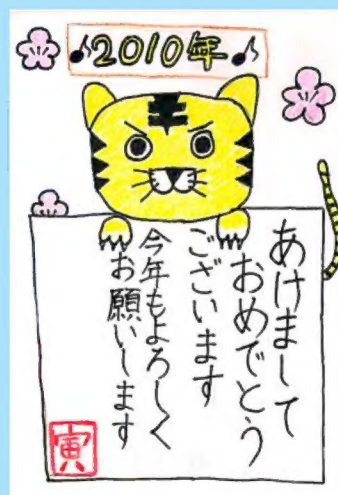 2010年
あけまして
おめでとう
ございます
今年もよろしく
お願いします
寅